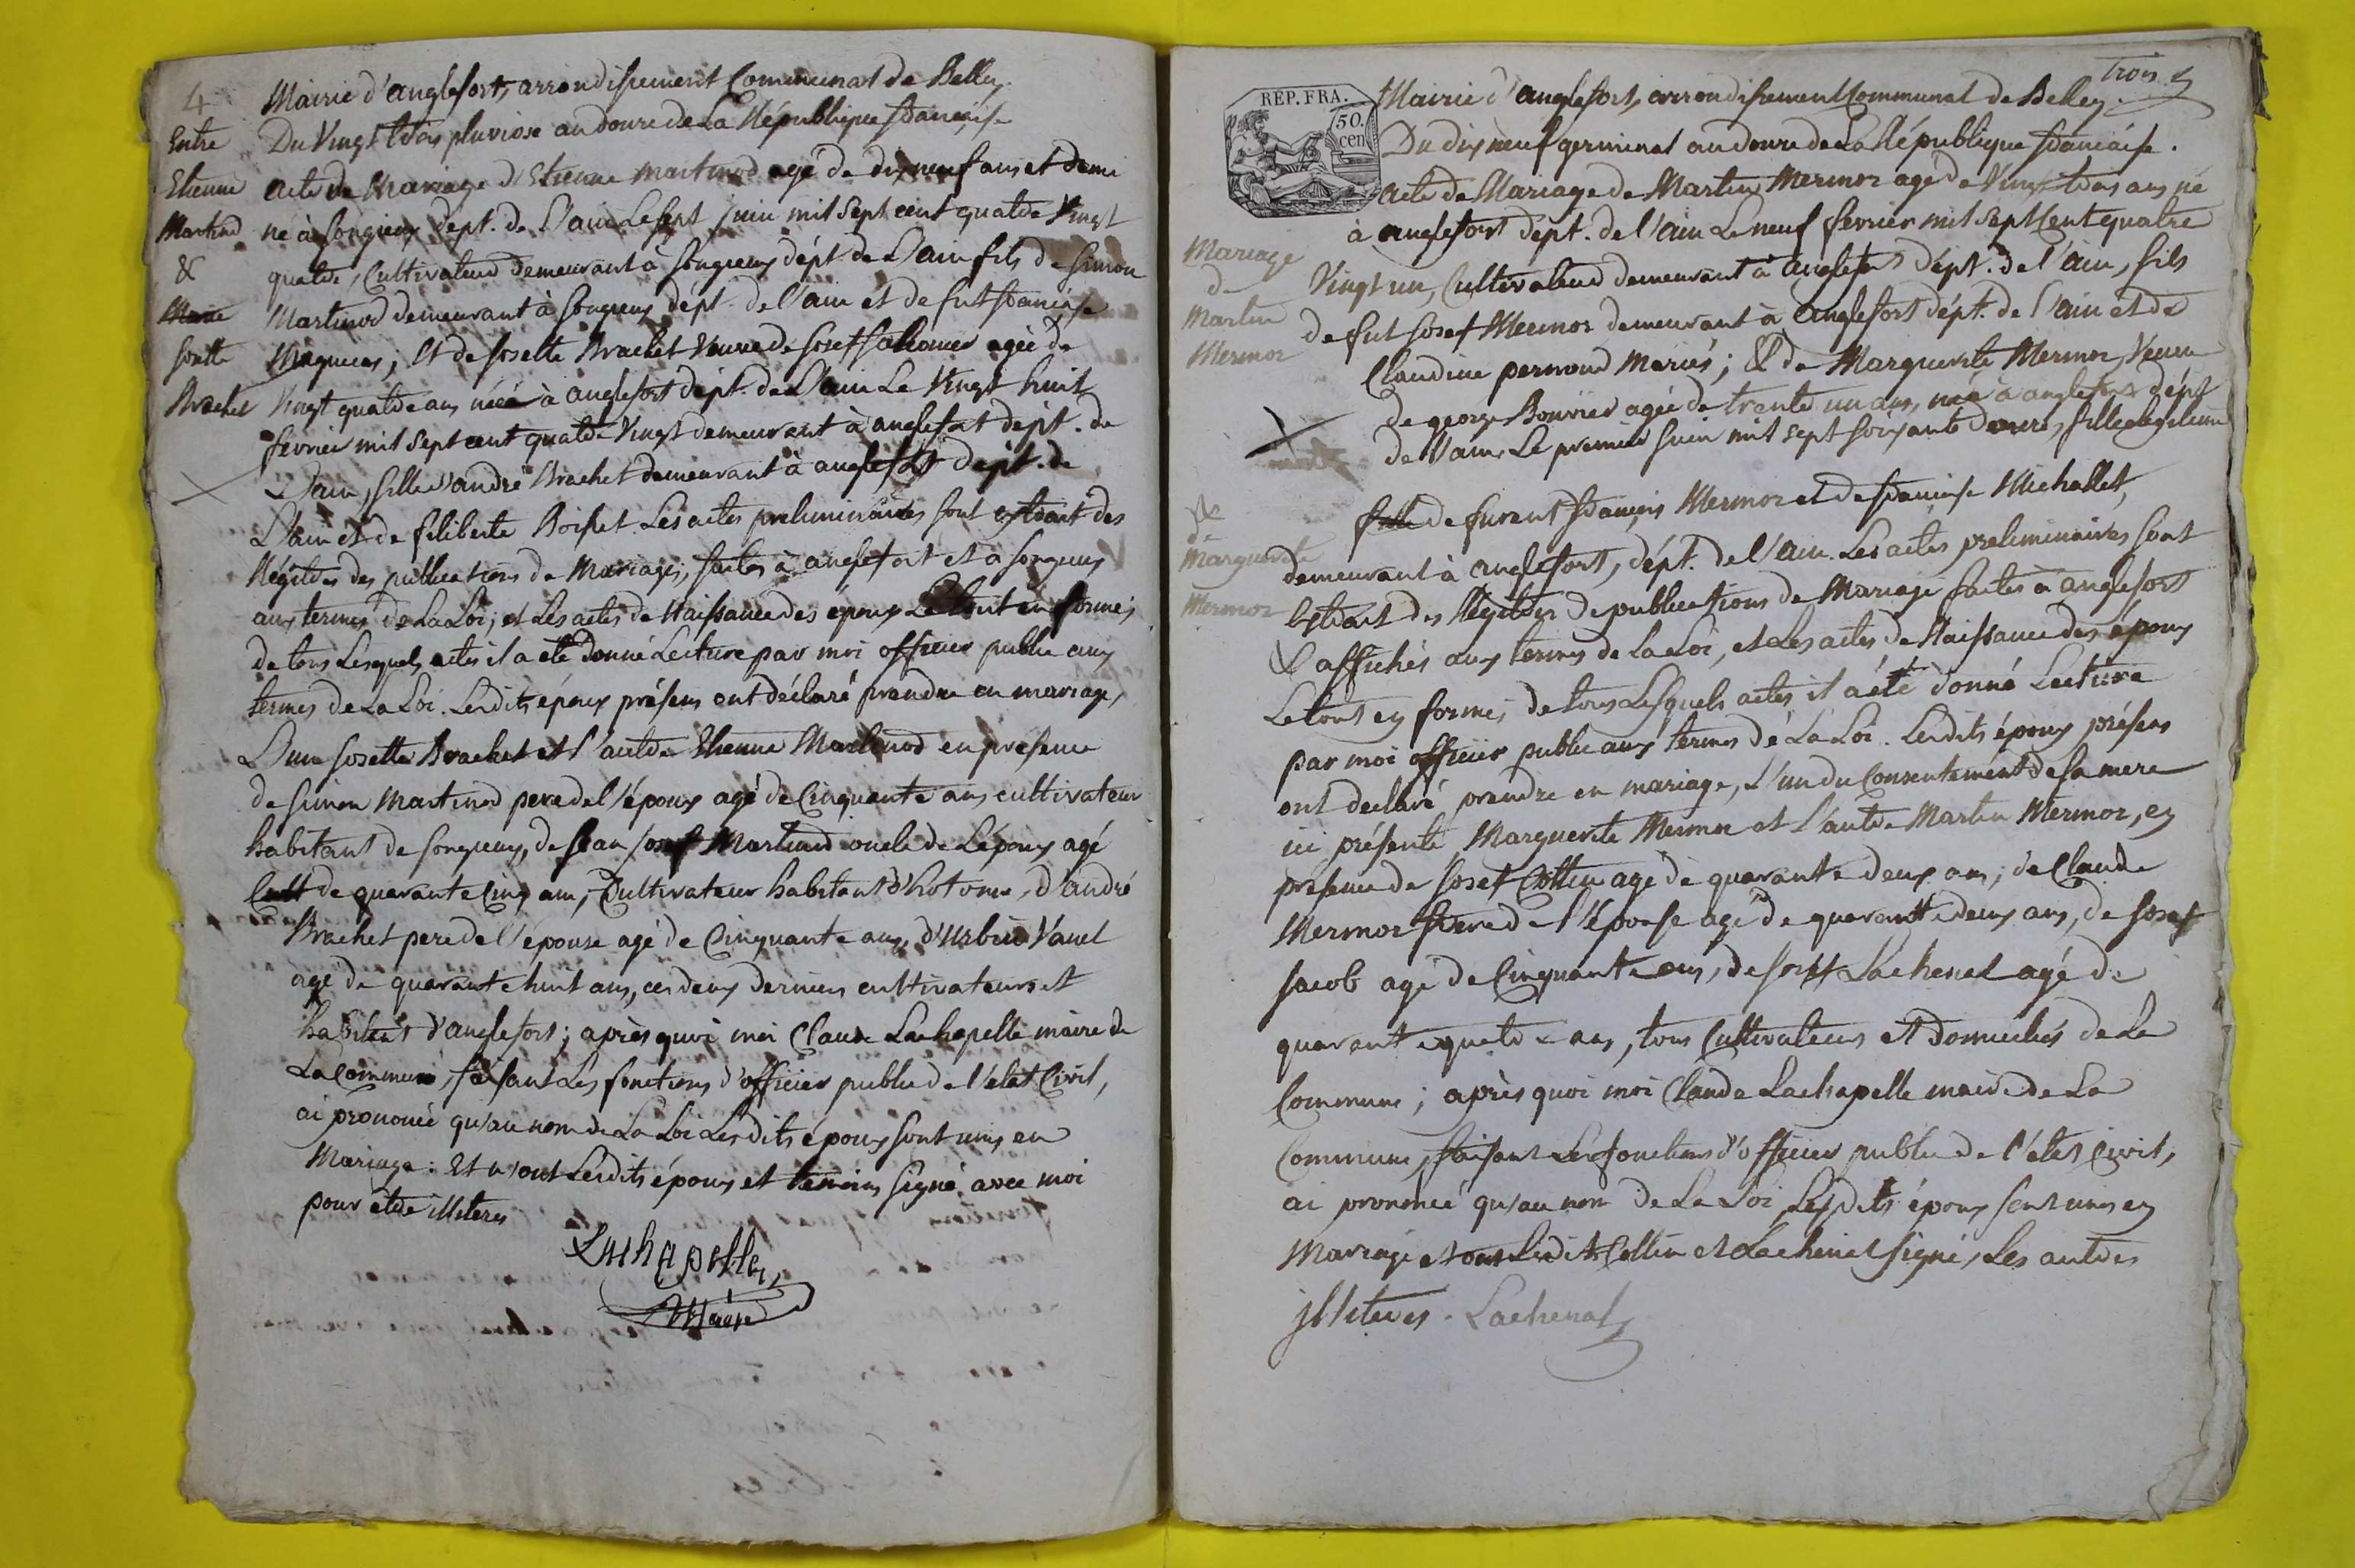 4
Mairie d'anglefort, arrondissement Communal de Belley.
Du Vingt trois pluviose an douze de La République française
Entre
Etienne
Martinod
&
Marie
Josette
Brachet
acte de Mariage d'Etienne martinod agé de dix neuf ans et demi
né à Songieux dept. de L'ain Le sept juin mil sept cent quatre Vingt
quatre, Cultivateur demeurant à Songieux dépt de L'ain fils de Simon
Martinod demeurant à Songieux dépt. de l'ain et de fut françoise
et de Josette Brachet Veuve de Josef agée de
Vingt quatre ans née à anglefort dépt. de L'ain Le Vingt huit
fevrier mil sept cent quatre Vingt demeurant à anglefort dépt. de
L'ain, fille d'andré Brachet demeurant à anglefort dépt. de
L'ain et de filiberte Boisset. Les actes preliminaires sont extrait des
Régitres des publications de Mariage, faites à anglefort et à Songieux
aux termes de La Loi; et Les actes de Naissance des epoux Le tout en forme;
de tous Lesquels actes il a été donné Lecture par moi officier public aux
termes de La Loi. Lesdits époux présens ont déclaré prendre en mariage,
L'un Josette Brachet et l'autre Etienne Martinod en presence
de Simon Martinod pere de l'époux agé de Cinquante ans cultivateur
habitant de Songieux, de Jean Josef Martinod oncle de L'époux agé
Cult de quarante Cinq ans, Cultivateur habitant d'hotonne, d'andré
Brachet pere de l'épouse agé de Cinquante ans, d'Urbin Vauel
agé de quarante huit ans, ces deux derniers cultivateurs et
habitant d'anglefort; après quoi moi Claude Lachapelle maire de
La Commune, faisant Les fonctions d'officier public de l'état Civil,
ai prononcé qu'au nom de La Loi Lesdits époux sont unis en
Mariage: Et n'ont Lesdits époux et temoins signé avec moi
pour être illiteres
Lachapelle
Maire
trois
REP. FRA.
50.
cen
Mairie d'anglefort, arrondissement Communal de Belley.
Du dix neuf germinal an douze de La République française.
Mariage
de
Martin
Mermoz
&
de
Marguerite
Mermoz
acte de Mariage de Martin Mermoz agé de Vingt trois ans né
à anglefort dépt. de l'ain Le neuf fevrier mil sept Cent quatre
Vingt un, Cultivateur demeurant à anglefort dépt. de l'ain, fils
de fut Josef Mermoz demeurant à anglefort dépt. de l'ain et de
Claudine pernoud mariés; & de Marguerite Mermoz, Veuve
de george Bouvier agée de trente un ans, née à anglefort dépt
de l'ain Le premier juin mil sept soixante douze, fille legitime
fille de furent françois Mermoz et de françoise Michallet,
demeurant à anglefort, dépt. de l'ain. Les actes preliminaires sont
Extrait des Régitres de publications de Mariage faites à anglefort
& affichés aux termes de La Loi, et Les actes de Naissance des époux
Le tout en forme; de tous Lesquels actes il a été donné Lecture
par moi officier public aux termes de La Loi. Lesdits époux présens
ont déclaré prendre en mariage, L'un du Consentement de sa mere
ici présente Marguerite Mermoz et L'autre Martin Mermoz, en
presence de Josef Collin agé de quarante deux ans, de Claude
Mermoz frere de l'épouse agé de quarante deux ans, de Josef
Jacob agé de Cinquante ans, de Josef Lachenal agé de
quarante quatre ans, tous Cultivateurs et domiciliés de la
Commune; après quoi moi Claude Lachapelle maire de La
Commune, faisant Les fonctions d'officier public de l'état Civil,
ai prononcé qu'au nom de La Loi Lesdits époux sont unis en
Mariage et ont Lesdits Collin et Lachenal signé, Les autres
illiteres. Lachenal